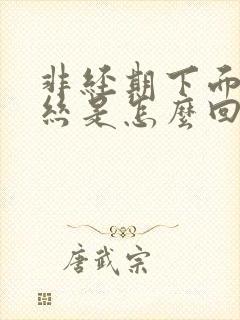 非經期下面
絲是怎麼回
唐武宗